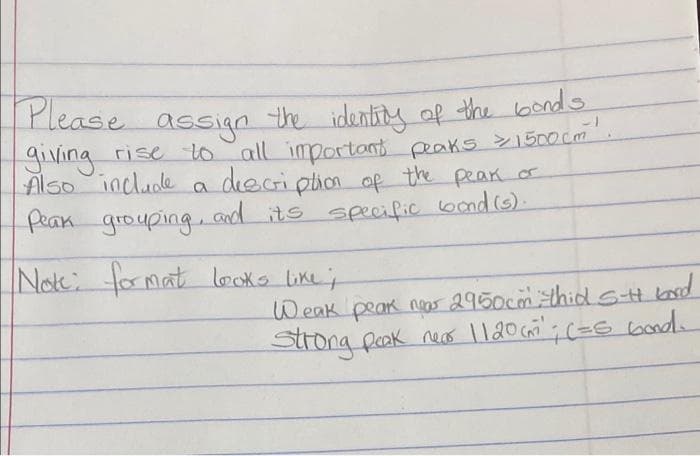 Please assign the identity of the bonds
giving rise to all important peaks ≥1500cm⁻¹.
Also include a description of the peak or
peak grouping, and its specific bond(s).
Note: format looks like;
Weak peak near 2950cm⁻¹; thiol S-H bond
Strong peak near 1120cm⁻¹; C=S bond.